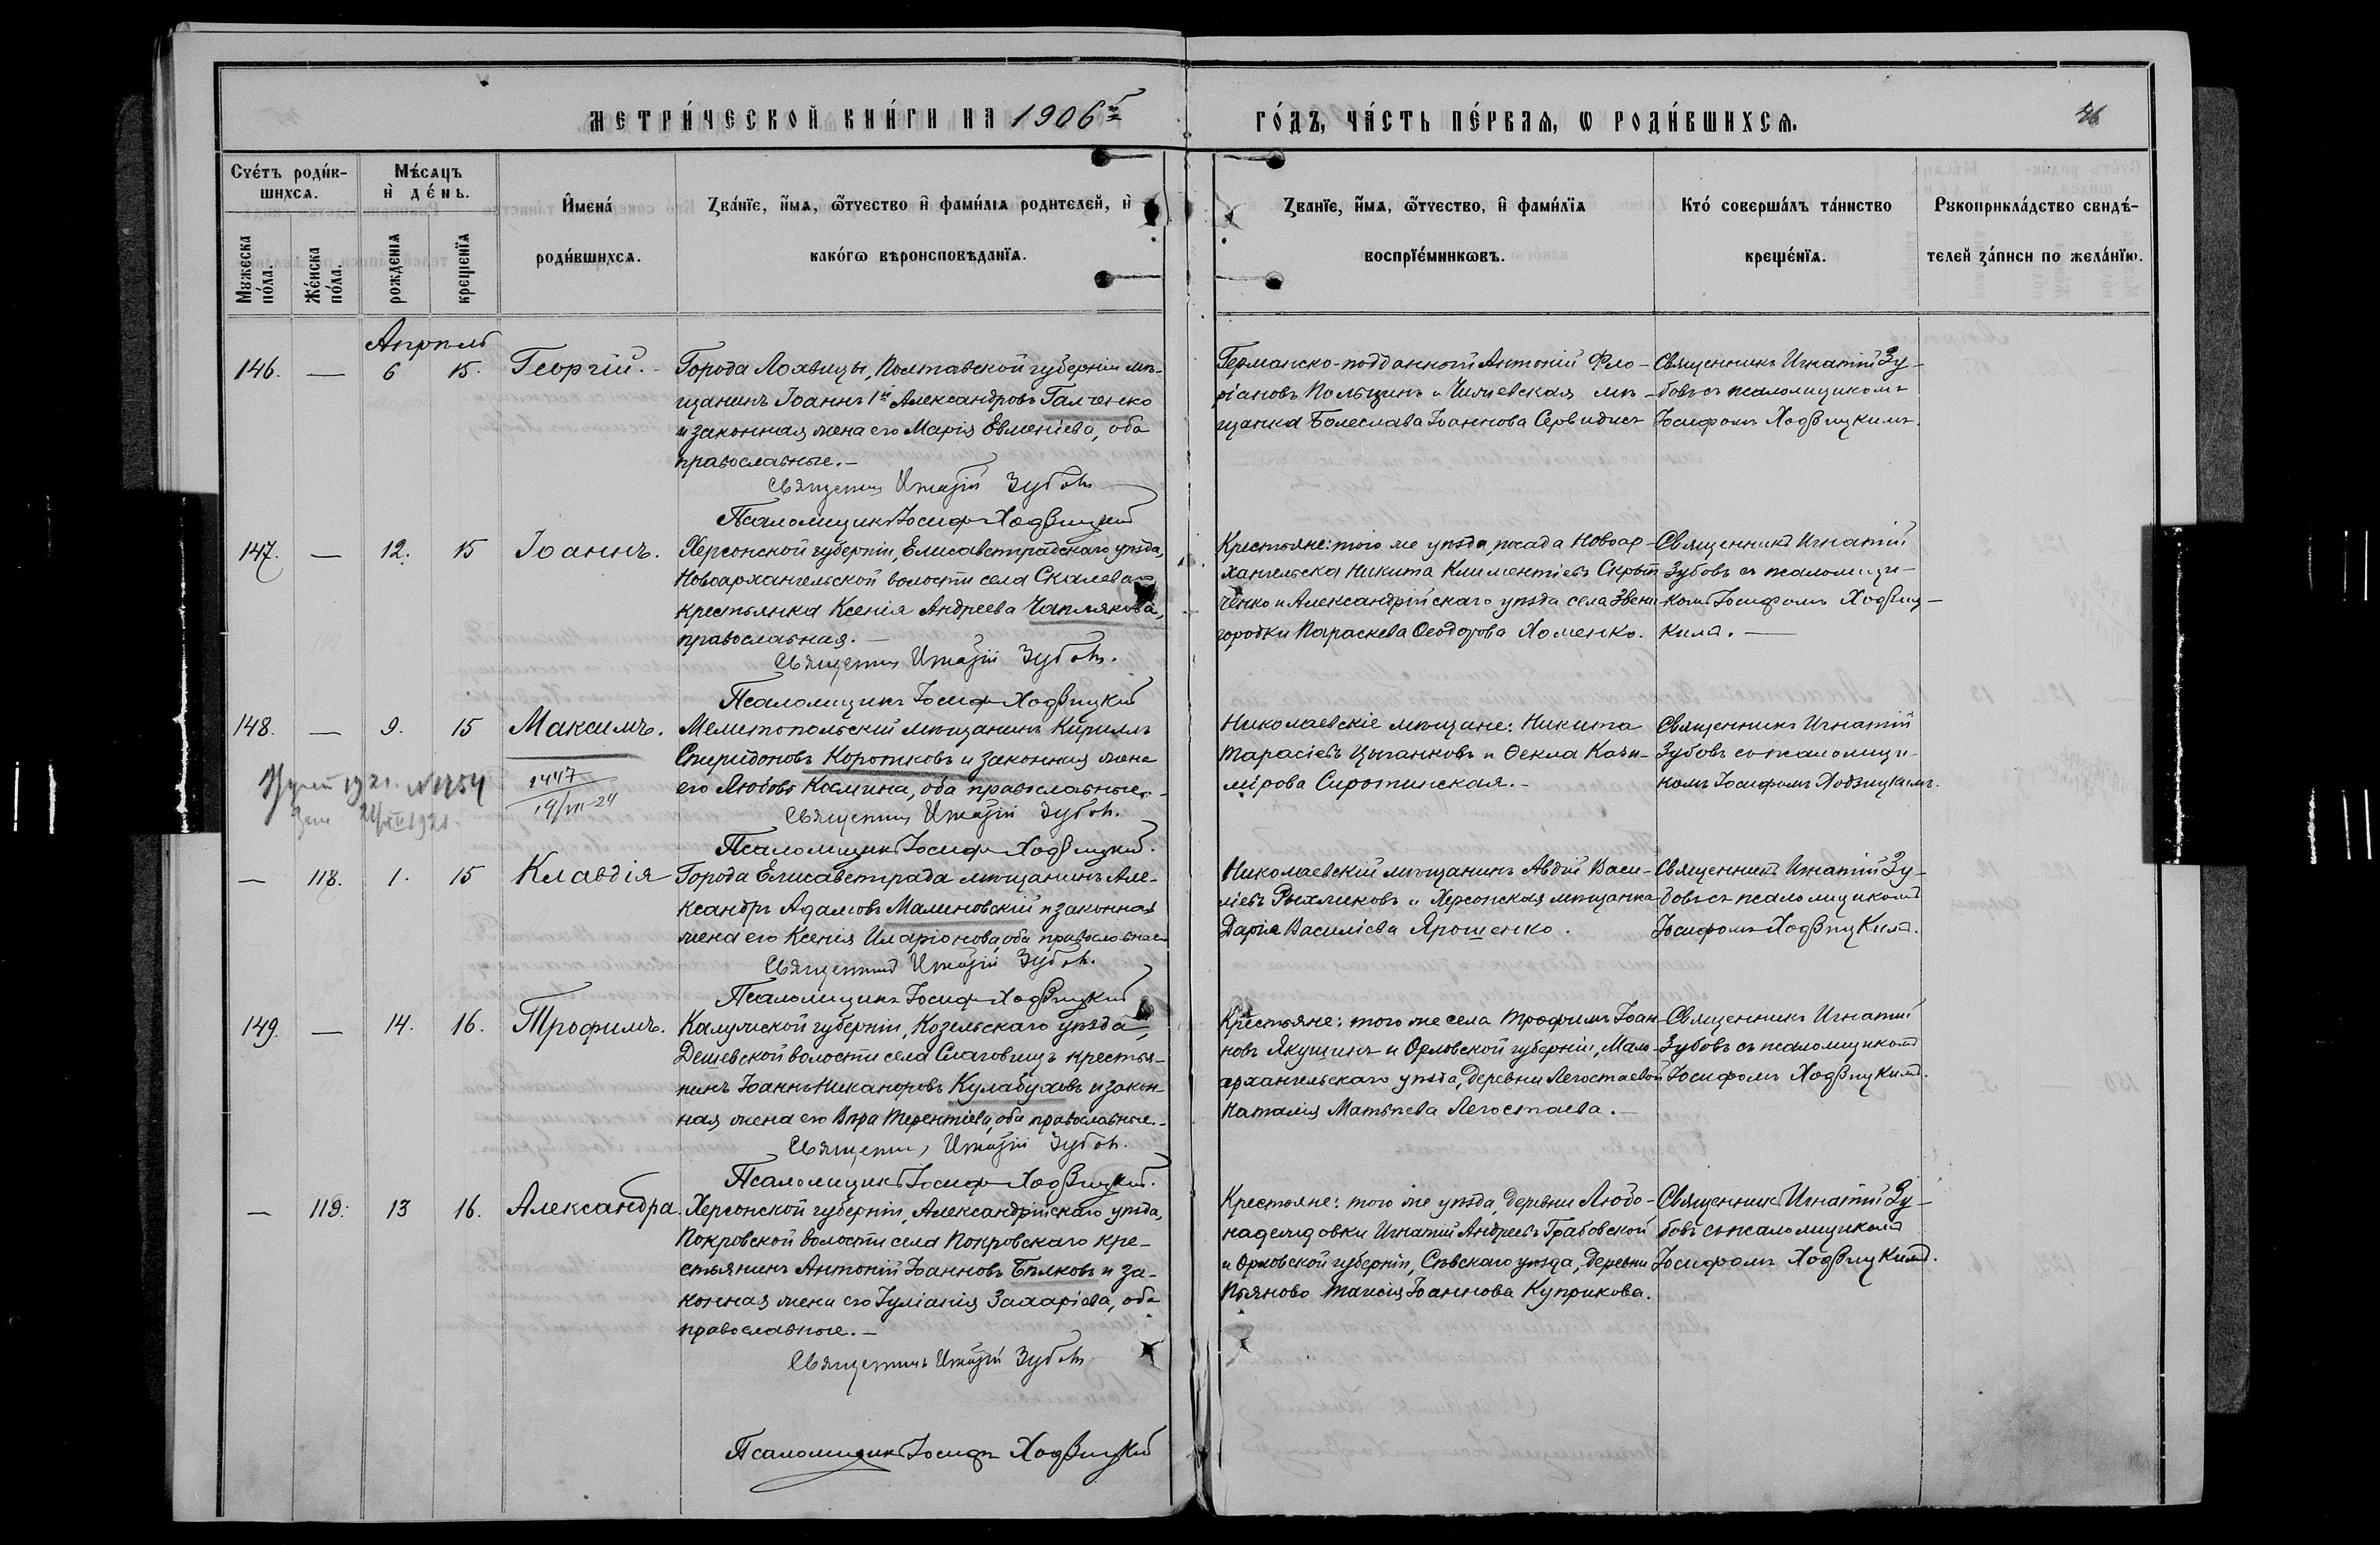 МЕТРИ́ЧЕСКОЙ КНИ́ГИ НА 1906й
ГО́ДЪ, ЧА́СТЬ ПЕ́РВАѦ, Ѡ РОДИ́ВШИХСѦ.
Счетъ роди́в-
шихсѧ.
Мѣ́сѧцъ
и де́нь.
Мꙋжеска
по́ла.
Же́нска
по́ла.
рожденїѧ
крещенїѧ
Имена́
роди́вшихсѧ.
Ꙁва́нїе, и́мѧ, ѻ҆́тчество и фами́лїѧ родителей, и
како́гѡ вѣроисповѣданїѧ.
Ꙁванїе, и́мѧ, ѻ҆́тчество, и фами́лїѧ
воспрїе́мникѡвъ.
Кто́ соверша́лъ та́инство
креще́нїѧ.
Рꙋкоприкла́дство свидѣ́-
телей ꙁа́писи по жела́нїю.
Апрѣль
146. — 6 15. Георгій.
Города Лохвицы, Полтавской губерніи мѣ-
щанинъ Іоаннъ 1й Александровъ Галченко
и законная жена его Марія Евменіева, оба
православные.—
Священникъ Игнатій Зубовъ
Псаломщикъ Іосифъ Ходзицкій
Германско-подданной Антоній Фло-
ріановъ Польщинъ и мѣ-
щанка Болеслава Іоаннова
Священникъ Игнатій Зу-
бовъ съ псаломщикомъ
Іосифомъ Ходзицкимъ.
147. — 12. 15 Іоаннъ.
Херсонской губерніи, Елисаветградскаго уѣзда,
Новоархангельской волости села Скалеваго
крестьянка Ксенія Андреева Чаплякова,
православная.—
Священникъ Игнатій Зубовъ.
Псаломщикъ Іосифъ Ходзицкій
Крестьяне: того же уѣзда посада Новоар-
хангельска Никита Климентіевъ Скрып-
ченко и Александрійскаго уѣзда села Звени-
городки Параскева Ѳеодорова Хоменко.
Священникъ Игнатій
Зубовъ съ псаломщи-
комъ Іосифомъ Ходзиц-
кимъ.—
148. — 9. 15 Максимъ.
2447
19/VII-24
1921. №1254
21/XII 1921.
Мелитопольскій мѣщанинъ Кириллъ
Спиридоновъ Коротковъ и законная жена
его Любовь Космина, оба православные.—
Священникъ Игнатій Зубовъ.
Псаломщикъ Іосифъ Ходзицкій.
Николаевскіе мѣщане: Никита
Тарасіевъ Цыганковъ и Ѳекла Кази-
мірова Сиротинская.—
Священникъ Игнатій
Зубовъ со псаломщи-
комъ Іосифомъ Ходзицкимъ.
— 118. 1. 15 Клавдія
Города Елисаветграда мѣщанинъ Але-
ксандръ Адамовъ Малиновскій и законная
жена его Ксенія Иларіонова, оба православные
Священникъ Игнатій Зубовъ.
Псаломщикъ Іосифъ Ходзицкій
Николаевскій мѣщанинъ Авдій Васи-
ліевъ Рыхликовъ и Херсонская мѣщанка
Дарія Василіева Ярошенко.
Священникъ Игнатій Зу-
бовъ съ псаломщикомъ
Іосифомъ Ходзицкимъ.
149. — 14. 16. Трофимъ.
Калужской губерніи, Козельскаго уѣзда,
Дешевской волости села Слаговищъ крестья-
нинъ Іоаннъ Никаноровъ Кулабуховъ и закон-
ная жена его Вѣра Терентіева, оба православные.—
Священникъ Игнатій Зубовъ.
Псаломщикъ Іосифъ Ходзицкій.
Крестьяне: того же села Трофимъ Іоан-
новъ Якушинъ и Орловской губерніи, Мало-
архангельскаго уѣзда, деревни Легостаевой
Наталія Матѳеева Легостаева.—
Священникъ Игнатій
Зубовъ съ псаломщикомъ
Іосифомъ Ходзицкимъ.
— 119. 13 16. Александра.
Херсонской губерніи, Александрійскаго уѣзда,
Покровской волости села Покровскаго кре-
стьянинъ Антоній Іоанновъ Бѣлковъ и за-
конная жена его Іуліанія Захаріева, оба
православные.—
Священникъ Игнатій Зубовъ.
Псаломщикъ Іосифъ Ходзицкій
Крестьяне: того же уѣзда, деревни Любо-
надеждовки Игнатій Андреевъ Грабовской
и Орловской губерніи, Сѣвскаго уѣзда, деревни
Пьяново Таисія Іоаннова Куприкова.
Священникъ Игнатій Зу-
бовъ съ псаломщикомъ
Іосифомъ Ходзицкимъ.